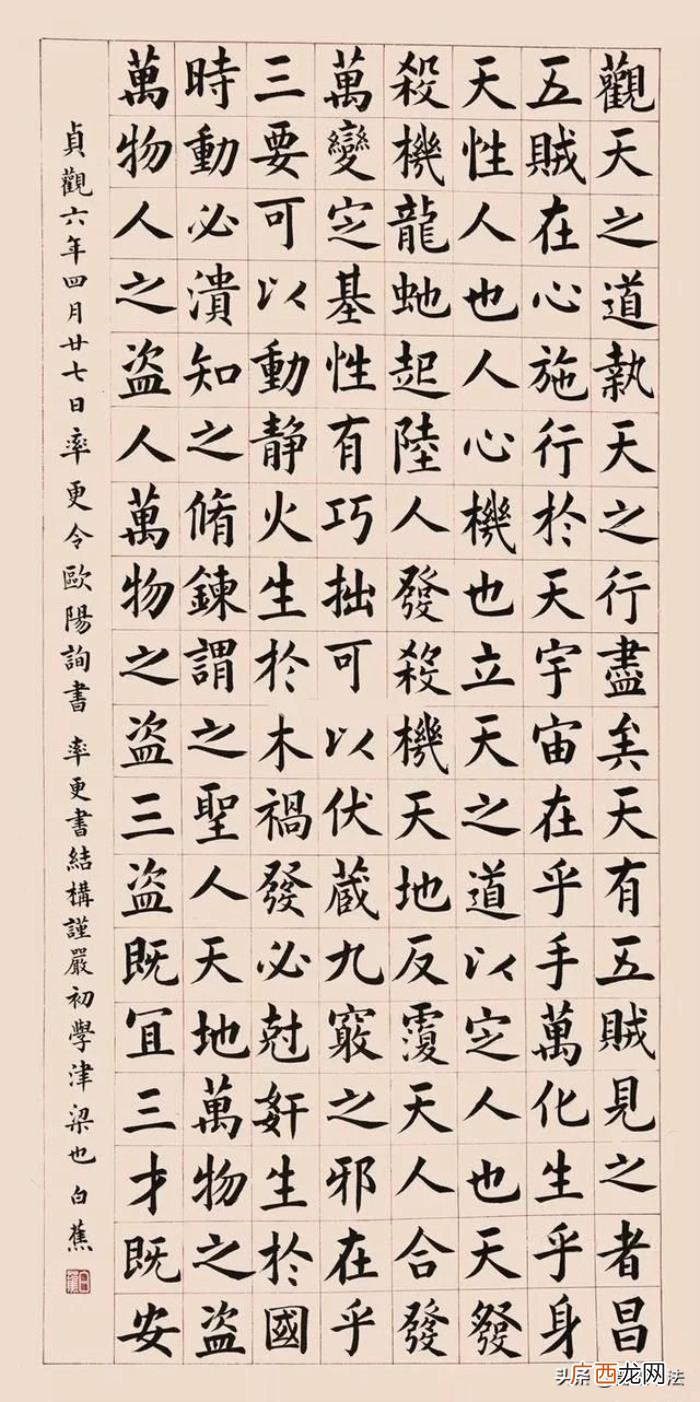 觀天之道執天之行盡矣天有五賊見之者昌
五賊在心施行於天宇宙在乎手萬化生乎身
天性人也人心機也立天之道以定人也天發
殺機龍虵起陸人發殺機天地反覆天人合發
萬變定基性有巧拙可以伏蔵九竅之邪在乎
三要可以動静火生於木禍發必尅奸生於國
時動必潰知之脩鍊謂之聖人天地萬物之盗
萬物人之盗人萬物之盗三盗既冝三才既安
貞觀六年四月廿七日率更令歐陽詢書 率更書結構謹嚴初學津梁也 白蕉
头条 法
广西龙网